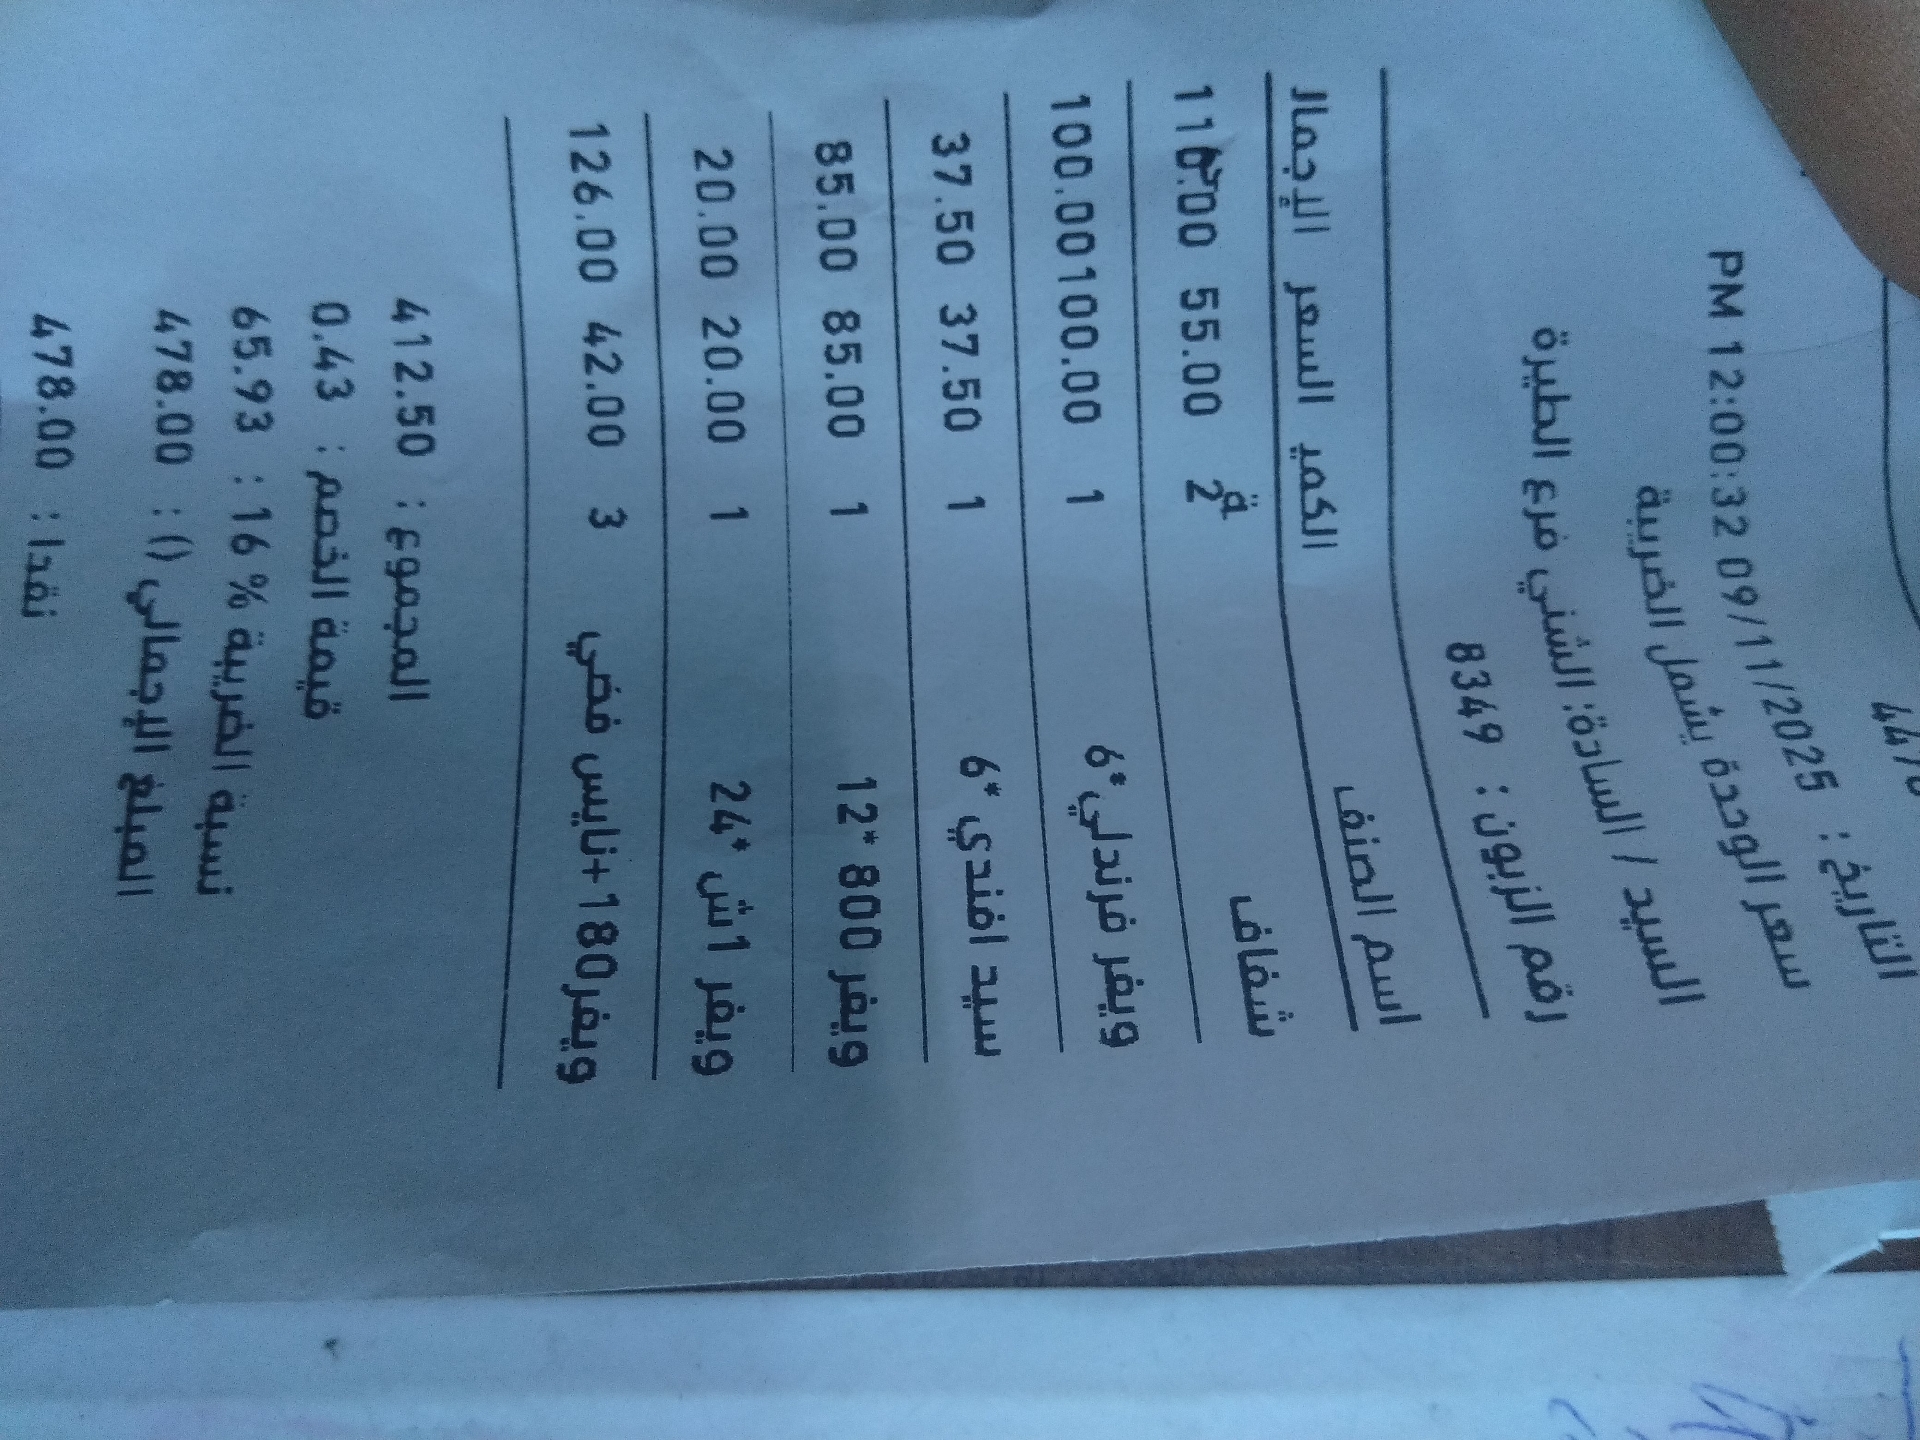 التاريخ : 09/11/2025 12:00:32 PM
سعر الوحدة يشمل الضريبة
السيد / السادة: الشني فرع الطيرة
رقم الزبون : 8349
اسم الصنف الكميـ السعر الإجمالـ
ة
شفاف 2 55.00 110.00
ويفر فرندلي *6 1 100.00 100.00
سيد افندي *6 1 37.50 37.50
ويفر 800 *12 1 85.00 85.00
ويفر 1ش *24 1 20.00 20.00
ويفر180+نايس فضي 3 42.00 126.00
المجموع : 412.50
قيمة الخصم : 0.43
نسبة الضريبة % 16 : 65.93
المبلغ الإجمالي () : 478.00
نقدا : 478.00